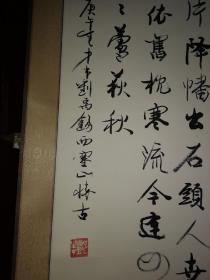 片降幡出石頭人世
依舊枕寒流今逢四
蘆荻秋
劉禹錫西塞山懷古